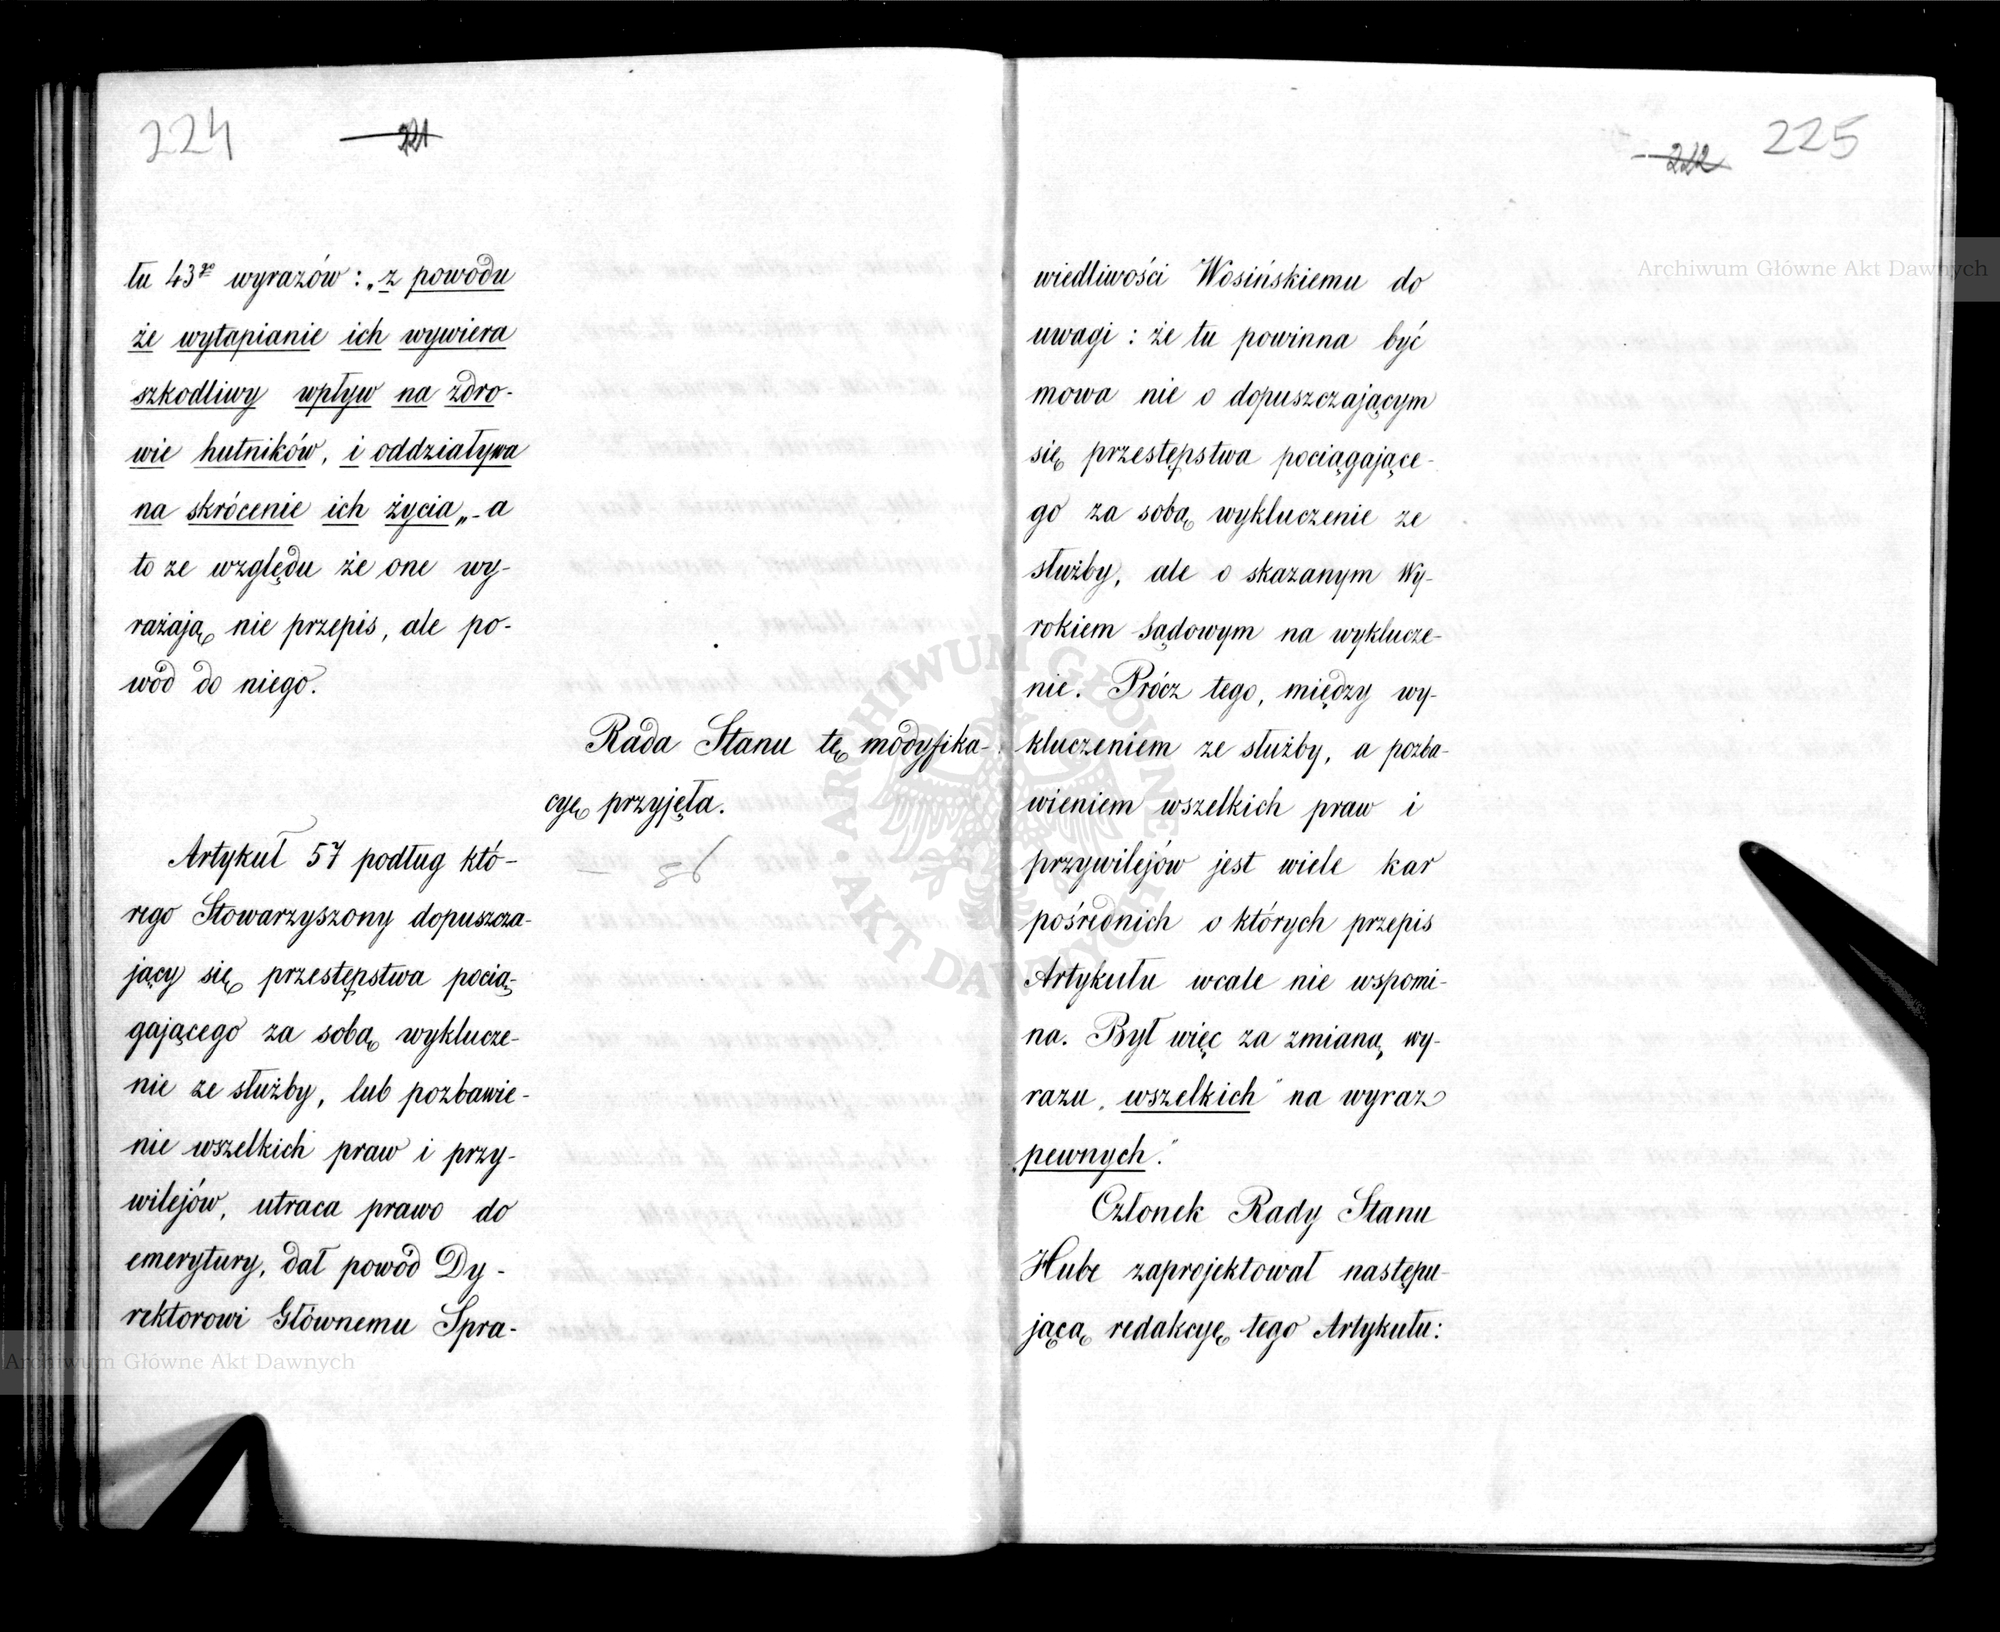 224
221
tu 43go wyrazów: „z powodu
że wytapianie ich wywiera
szkodliwy wpływ na zdro-
wie hutników, i oddziaływa
na skrócenie ich życia„ - a
to ze względu że one wy-
rażają nie przepis, ale po-
wód do niego.
Rada Stanu tę modyfika-
cyę przyjęła.
Artykuł 57 podług któ-
rego Stowarzyszony dopuszcza-
jący się przestępstwa pocią-
gającego za sobą wyklucze-
nie ze służby, lub pozbawie-
nie wszelkich praw i przy-
wilejów, utraca prawo do
emerytury, dał powód Dy-
rektorowi Głównemu Spra-
222
225
wiedliwości Wosińskiemu do
uwagi: że tu powinna być
mowa nie o dopuszczającym
się przestępstwa pociągające-
go za sobą wykluczenie ze
służby, ale o skazanym Wy-
rokiem Sądowym na wyklucze-
nie. Prócz tego, między wy-
kluczeniem ze służby, a pozba-
wieniem wszelkich praw i
przywilejów jest wiele kar
pośrednich o których przepis
Artykułu wcale nie wspomi-
na. Był więc za zmianą wy-
razu „wszelkich" na wyraz
„pewnych".
Członek Rady Stanu
Hube zaprojektował następu-
jącą redakcyę tego Artykułu:
Archiwum Główne Akt Dawnych
Archiwum Główne Akt Dawnych
ARCHIWUM GŁÓWNE AKT DAWNYCH